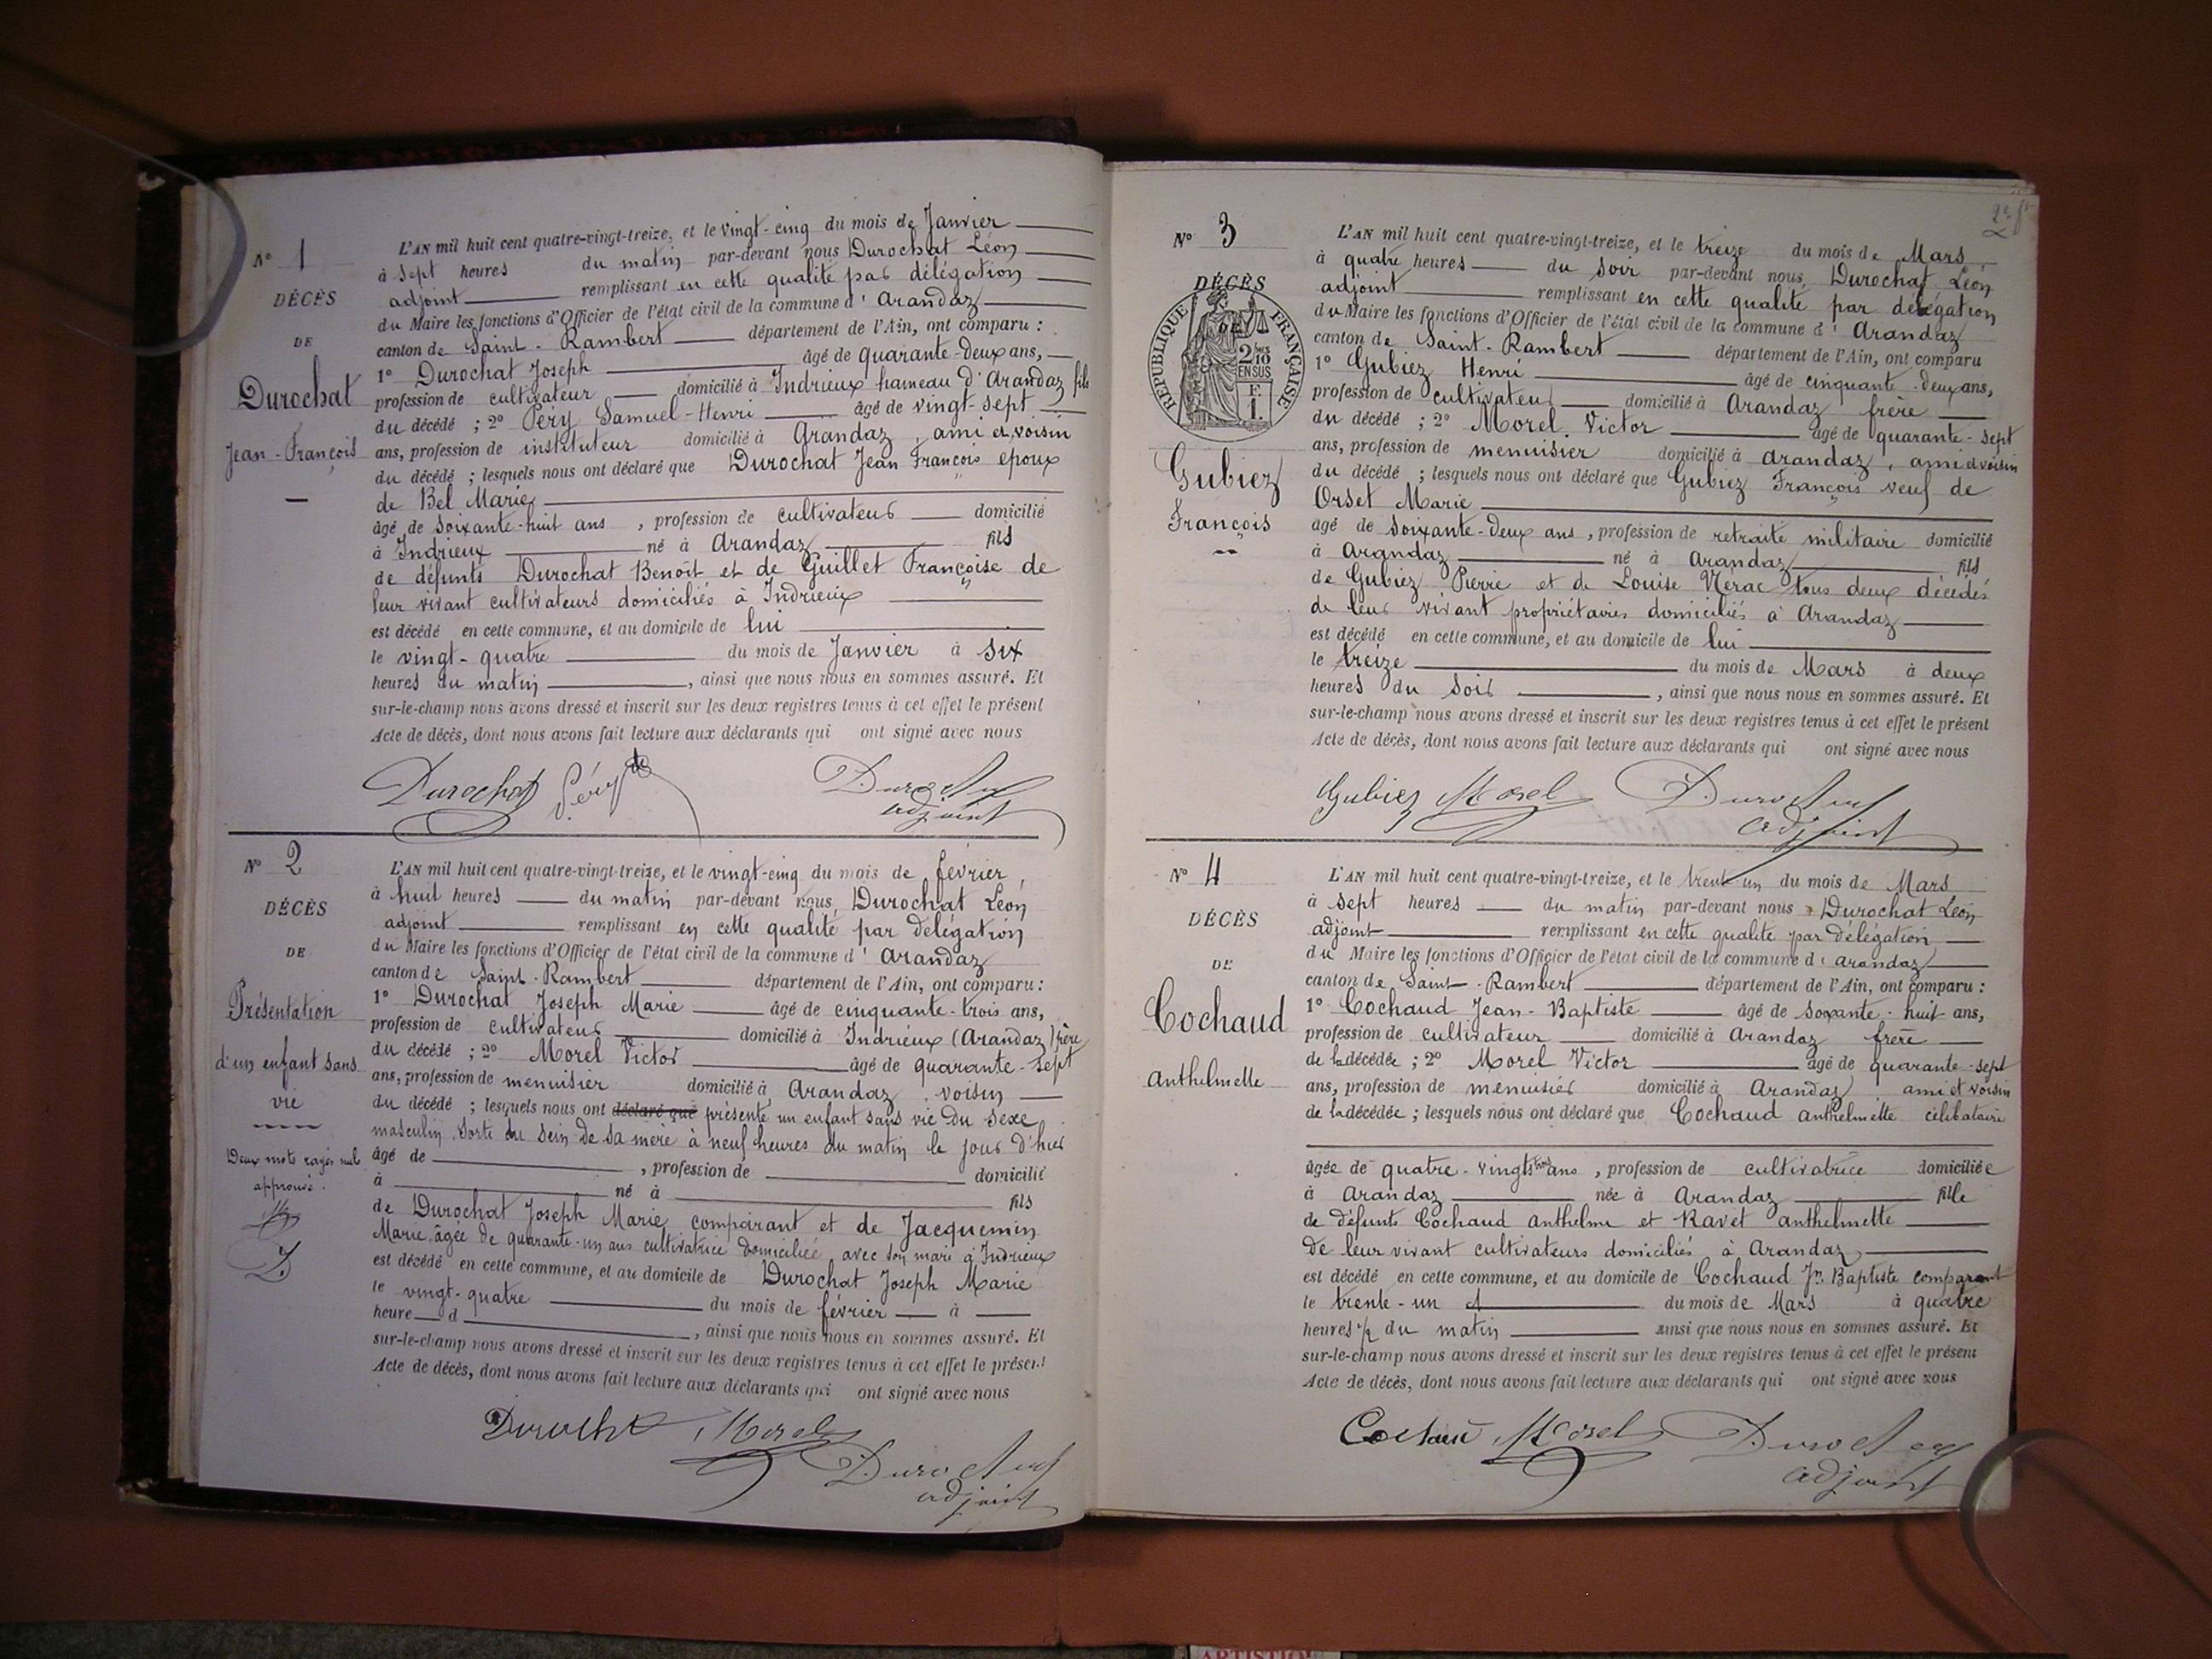 N° 1
DÉCÈS
DE
Durochat
Jean-François
L'AN mil huit cent quatre-vingt-treize, et le vingt-cinq du mois de Janvier
à sept heures du matin par-devant nous Durochat Léon
adjoint remplissant en cette qualité par délégation
du Maire les fonctions d'Officier de l'état civil de la commune d'Arandaz
canton de Saint-Rambert département de l'Ain, ont comparu :
1° Durochat Joseph âgé de quarante-deux ans,
profession de cultivateur domicilié à Indrieux hameau d'Arandaz fils
du décédé ; 2° Péry Samuel-Henri âgé de vingt-sept
ans, profession de instituteur domicilié à Arandaz, ami et voisin
du décédé ; lesquels nous ont déclaré que Durochat Jean François époux
de Bel Marie
âgé de soixante-huit ans, profession de cultivateur domicilié
à Indrieux né à Arandaz fils
de défunts Durochat Benoît et de Guillet Françoise de
leur vivant cultivateurs domiciliés à Indrieux
est décédé en cette commune, et au domicile de lui
le vingt-quatre du mois de Janvier à six
heures du matin, ainsi que nous nous en sommes assuré. Et
sur-le-champ nous avons dressé et inscrit sur les deux registres tenus à cet effet le présent
Acte de décès, dont nous avons fait lecture aux déclarants qui ont signé avec nous
Durochat Péry Durochat
adjoint
N° 2
DÉCÈS
DE
Présentation
d'un enfant sans
vie
Deux mots rayés nul
approuvé.
L'AN mil huit cent quatre-vingt-treize, et le vingt-cinq du mois de février,
à huit heures du matin par-devant nous, Durochat Léon
adjoint remplissant en cette qualité par délégation
du Maire les fonctions d'Officier de l'état civil de la commune d'Arandaz
canton de Saint-Rambert département de l'Ain, ont comparu :
1° Durochat Joseph Marie âgé de cinquante-trois ans,
profession de cultivateur domicilié à Indrieux (Arandaz) père
du décédé ; 2° Morel Victor âgé de quarante-sept
ans, profession de menuisier domicilié à Arandaz, voisin
du décédé ; lesquels nous ont déclaré que présenté un enfant sans vie du sexe
masculin, sorti du sein de sa mère à neuf heures du matin le jour d'hier
âgé de , profession de domicilié
à né à fils
de Durochat Joseph Marie, comparant et de Jacquemin
Marie, âgée de quarante-un ans cultivatrice domiciliée avec son mari à Indrieux
est décédé en cette commune, et au domicile de Durochat Joseph Marie
le vingt-quatre du mois de février à
heure d , ainsi que nous nous en sommes assuré. Et
sur-le-champ nous avons dressé et inscrit sur les deux registres tenus à cet effet le présent
Acte de décès, dont nous avons fait lecture aux déclarants qui ont signé avec nous
Durochat Morel Durochat
adjoint
N° 3
DÉCÈS
DE
RÉPUBLIQUE FRANÇAISE
2/10
EN SUS
Gubiez
François
L'AN mil huit cent quatre-vingt-treize, et le treize du mois de Mars
à quatre heures du soir par-devant nous, Durochat Léon
adjoint remplissant en cette qualité par délégation
du Maire les fonctions d'Officier de l'état civil de la commune d'Arandaz
canton de Saint-Rambert département de l'Ain, ont comparu
1° Gubiez Henri âgé de cinquante-deux ans,
profession de cultivateur domicilié à Arandaz frère
du décédé ; 2° Morel Victor âgé de quarante-sept
ans, profession de menuisier domicilié à Arandaz, ami et voisin
du décédé ; lesquels nous ont déclaré que Gubiez François veuf de
Orset Marie
âgé de soixante-deux ans, profession de retraite militaire domicilié
à Arandaz né à Arandaz fils
de Gubiez Pierre et de Louise tous deux décédés
de leur vivant propriétaires domiciliés à Arandaz
est décédé en cette commune, et au domicile de lui
le treize du mois de Mars à deux
heures du soir, ainsi que nous nous en sommes assuré. Et
sur-le-champ nous avons dressé et inscrit sur les deux registres tenus à cet effet le présent
Acte de décès, dont nous avons fait lecture aux déclarants qui ont signé avec nous
Gubiez Morel Durochat
adjoint
N° 4
DÉCÈS
DE
Cochaud
Anthelmette
L'AN mil huit cent quatre-vingt-treize, et le trente un du mois de Mars
à sept heures du matin par-devant nous Durochat Léon
adjoint remplissant en cette qualité par délégation
du Maire les fonctions d'Officier de l'état civil de la commune d'Arandaz
canton de Saint-Rambert département de l'Ain, ont comparu :
1° Cochaud Jean-Baptiste âgé de soixante-huit ans,
profession de cultivateur domicilié à Arandaz frère
de la décédée ; 2° Morel Victor âgé de quarante-sept
ans, profession de menuisier domicilié à Arandaz ami et voisin
de la décédée ; lesquels nous ont déclaré que Cochaud anthelmette célibataire
âgée de quatre-vingts trois ans, profession de cultivatrice domiciliée
à Arandaz née à Arandaz fille
de défunts Cochaud anthelme et Ravet anthelmette
de leur vivant cultivateurs domiciliés à Arandaz
est décédé en cette commune, et au domicile de Cochaud Jn Baptiste comparant
le trente-un du mois de Mars à quatre
heures ½ du matin ainsi que nous nous en sommes assuré. Et
sur-le-champ nous avons dressé et inscrit sur les deux registres tenus à cet effet le présent
Acte de décès, dont nous avons fait lecture aux déclarants qui ont signé avec nous
Cochaud Morel Durochat
adjoint